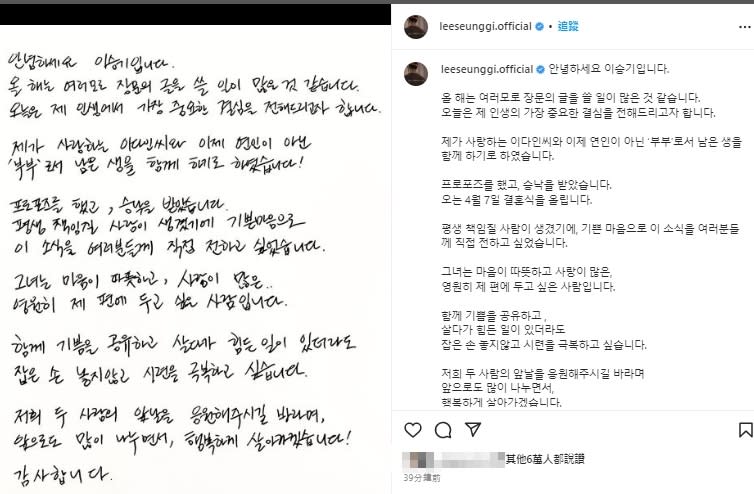 안녕하세요 이승기입니다.
올 해는 여러모로 장문의 글을 쓸 일이 많은 것 같습니다.
오늘은 제 인생에서 가장 중요한 결심을 전해드리고자 합니다.
제가 사랑하는 이다인씨와 이제 연인이 아닌
'부부'로서 남은 생을 함께 하기로 하였습니다!
프로포즈를 했고, 승낙을 받았습니다.
평생 책임질 사람이 생겼기에 기쁜마음으로
이 소식을 여러분들께 직접 전하고 싶었습니다.
그녀는 마음이 따뜻하고, 사랑이 많은..
영원히 제 편에 두고 싶은 사람입니다.
함께 기쁨을 공유하고 살다가 힘든 일이 있더라도
잡은 손 놓지않고 시련을 극복하고 싶습니다.
저희 두 사람의 앞날을 응원해주시길 바라며,
앞으로도 많이 나누면서, 행복하게 살아가겠습니다!
감사합니다.
leeseunggi.official • 追蹤
leeseunggi.official 안녕하세요 이승기입니다.
올 해는 여러모로 장문의 글을 쓸 일이 많은 것 같습니다.
오늘은 제 인생의 가장 중요한 결심을 전해드리고자 합니다.
제가 사랑하는 이다인씨와 이제 연인이 아닌 '부부'로서 남은 생을
함께 하기로 하였습니다.
프로포즈를 했고, 승낙을 받았습니다.
오는 4월 7일 결혼식을 올립니다.
평생 책임질 사람이 생겼기에, 기쁜 마음으로 이 소식을 여러분들
께 직접 전하고 싶었습니다.
그녀는 마음이 따뜻하고 사랑이 많은,
영원히 제 편에 두고 싶은 사람입니다.
함께 기쁨을 공유하고 ,
살다가 힘든 일이 있더라도
잡은 손 놓지않고 시련을 극복하고 싶습니다.
저희 두 사람의 앞날을 응원해주시길 바라며
앞으로도 많이 나누면서,
행복하게 살아가겠습니다.
其他6萬人都說讚
39分鐘前